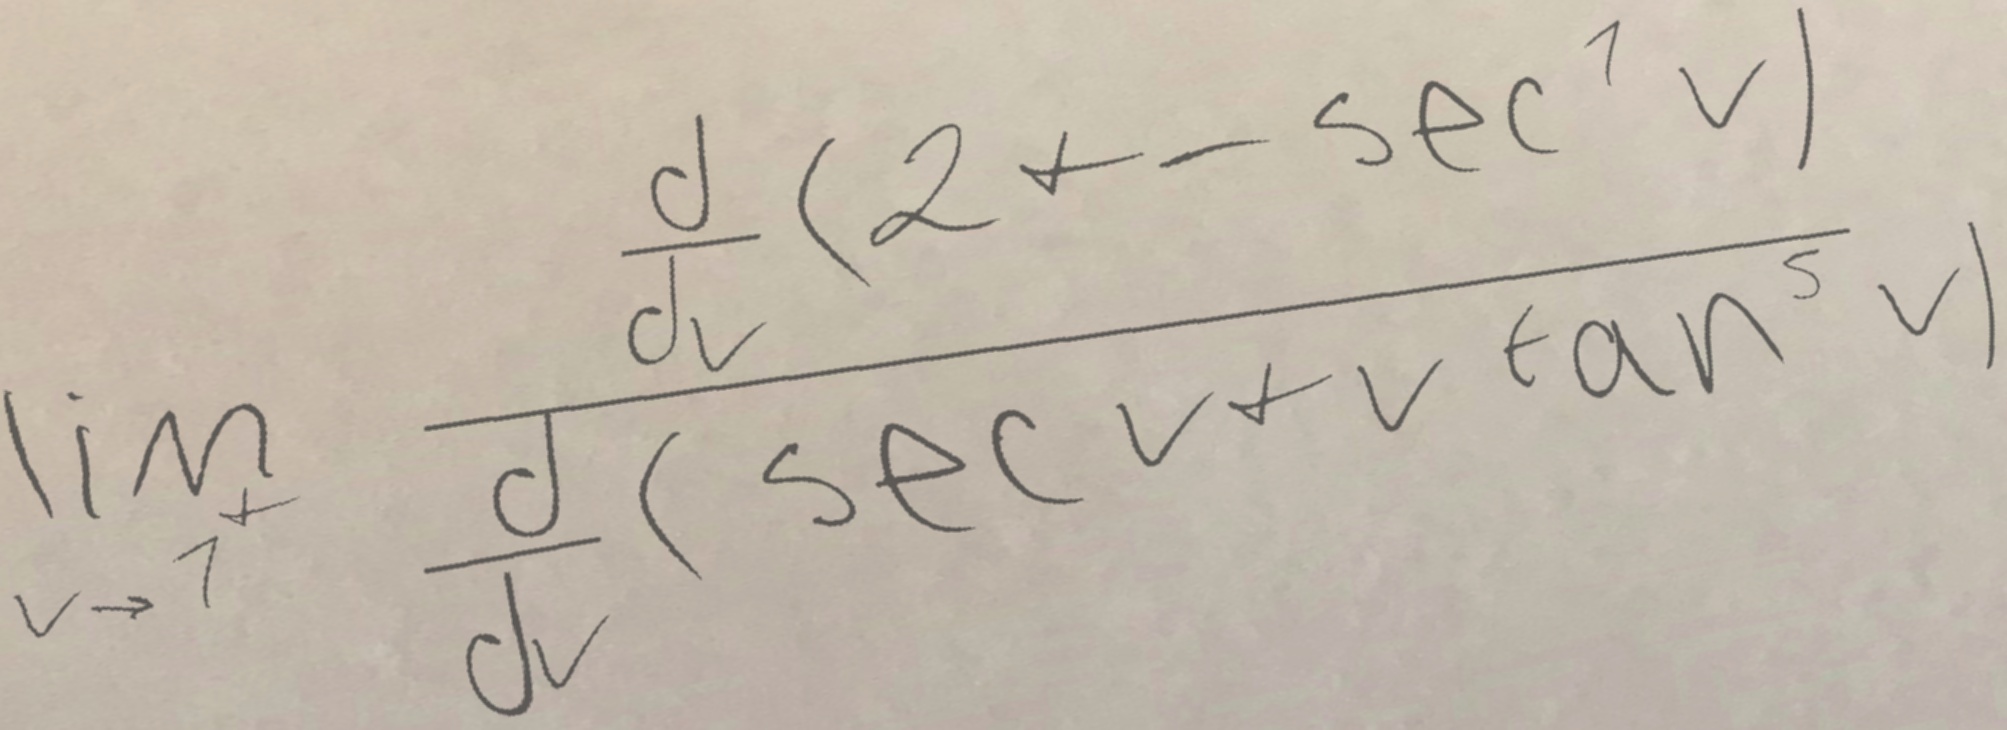 \lim_{v \to 1^{+}} \frac{\frac{d}{dv}(2 + - \sec^{1} v)}{\frac{d}{dv}(\sec v + v \tan^{5} v)}